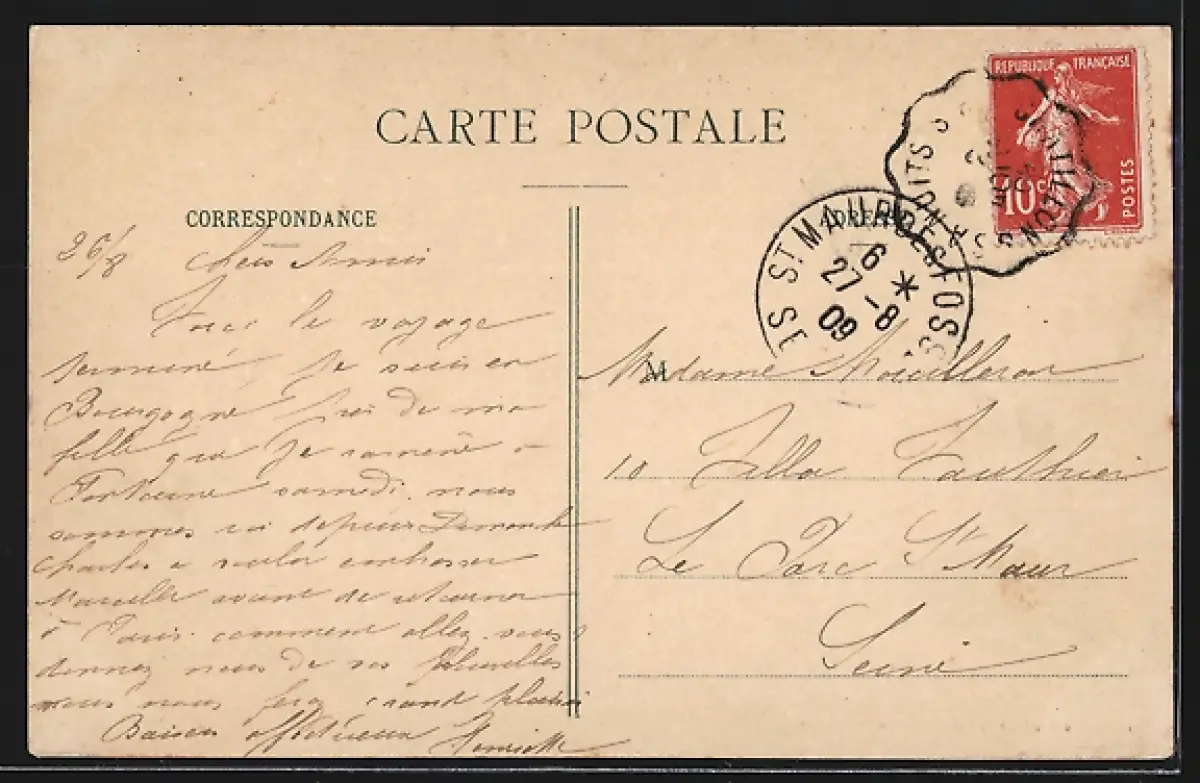 CARTE POSTALE
CORRESPONDANCE
26/8 Chers Amis
le voyage
terminé je suis en
Bourgogne près de ma
fille que je ramène à
samedi. nous
sommes ici depuis Dimanche
Charles a voulu embrasser
Marcelle avant de retourner
à Paris. comment allez vous?
donnez nous de vos nouvelles
vous nous fere grand plaisir
Baisers affectueux Henriette
REPUBLIQUE FRANÇAISE
10 c
POSTES
ST MAUR DES FOSS
6 *
27 - 8
09
ADRES
M
Madame
10 Villa Vauthier
Le Parc St Maur
Seine